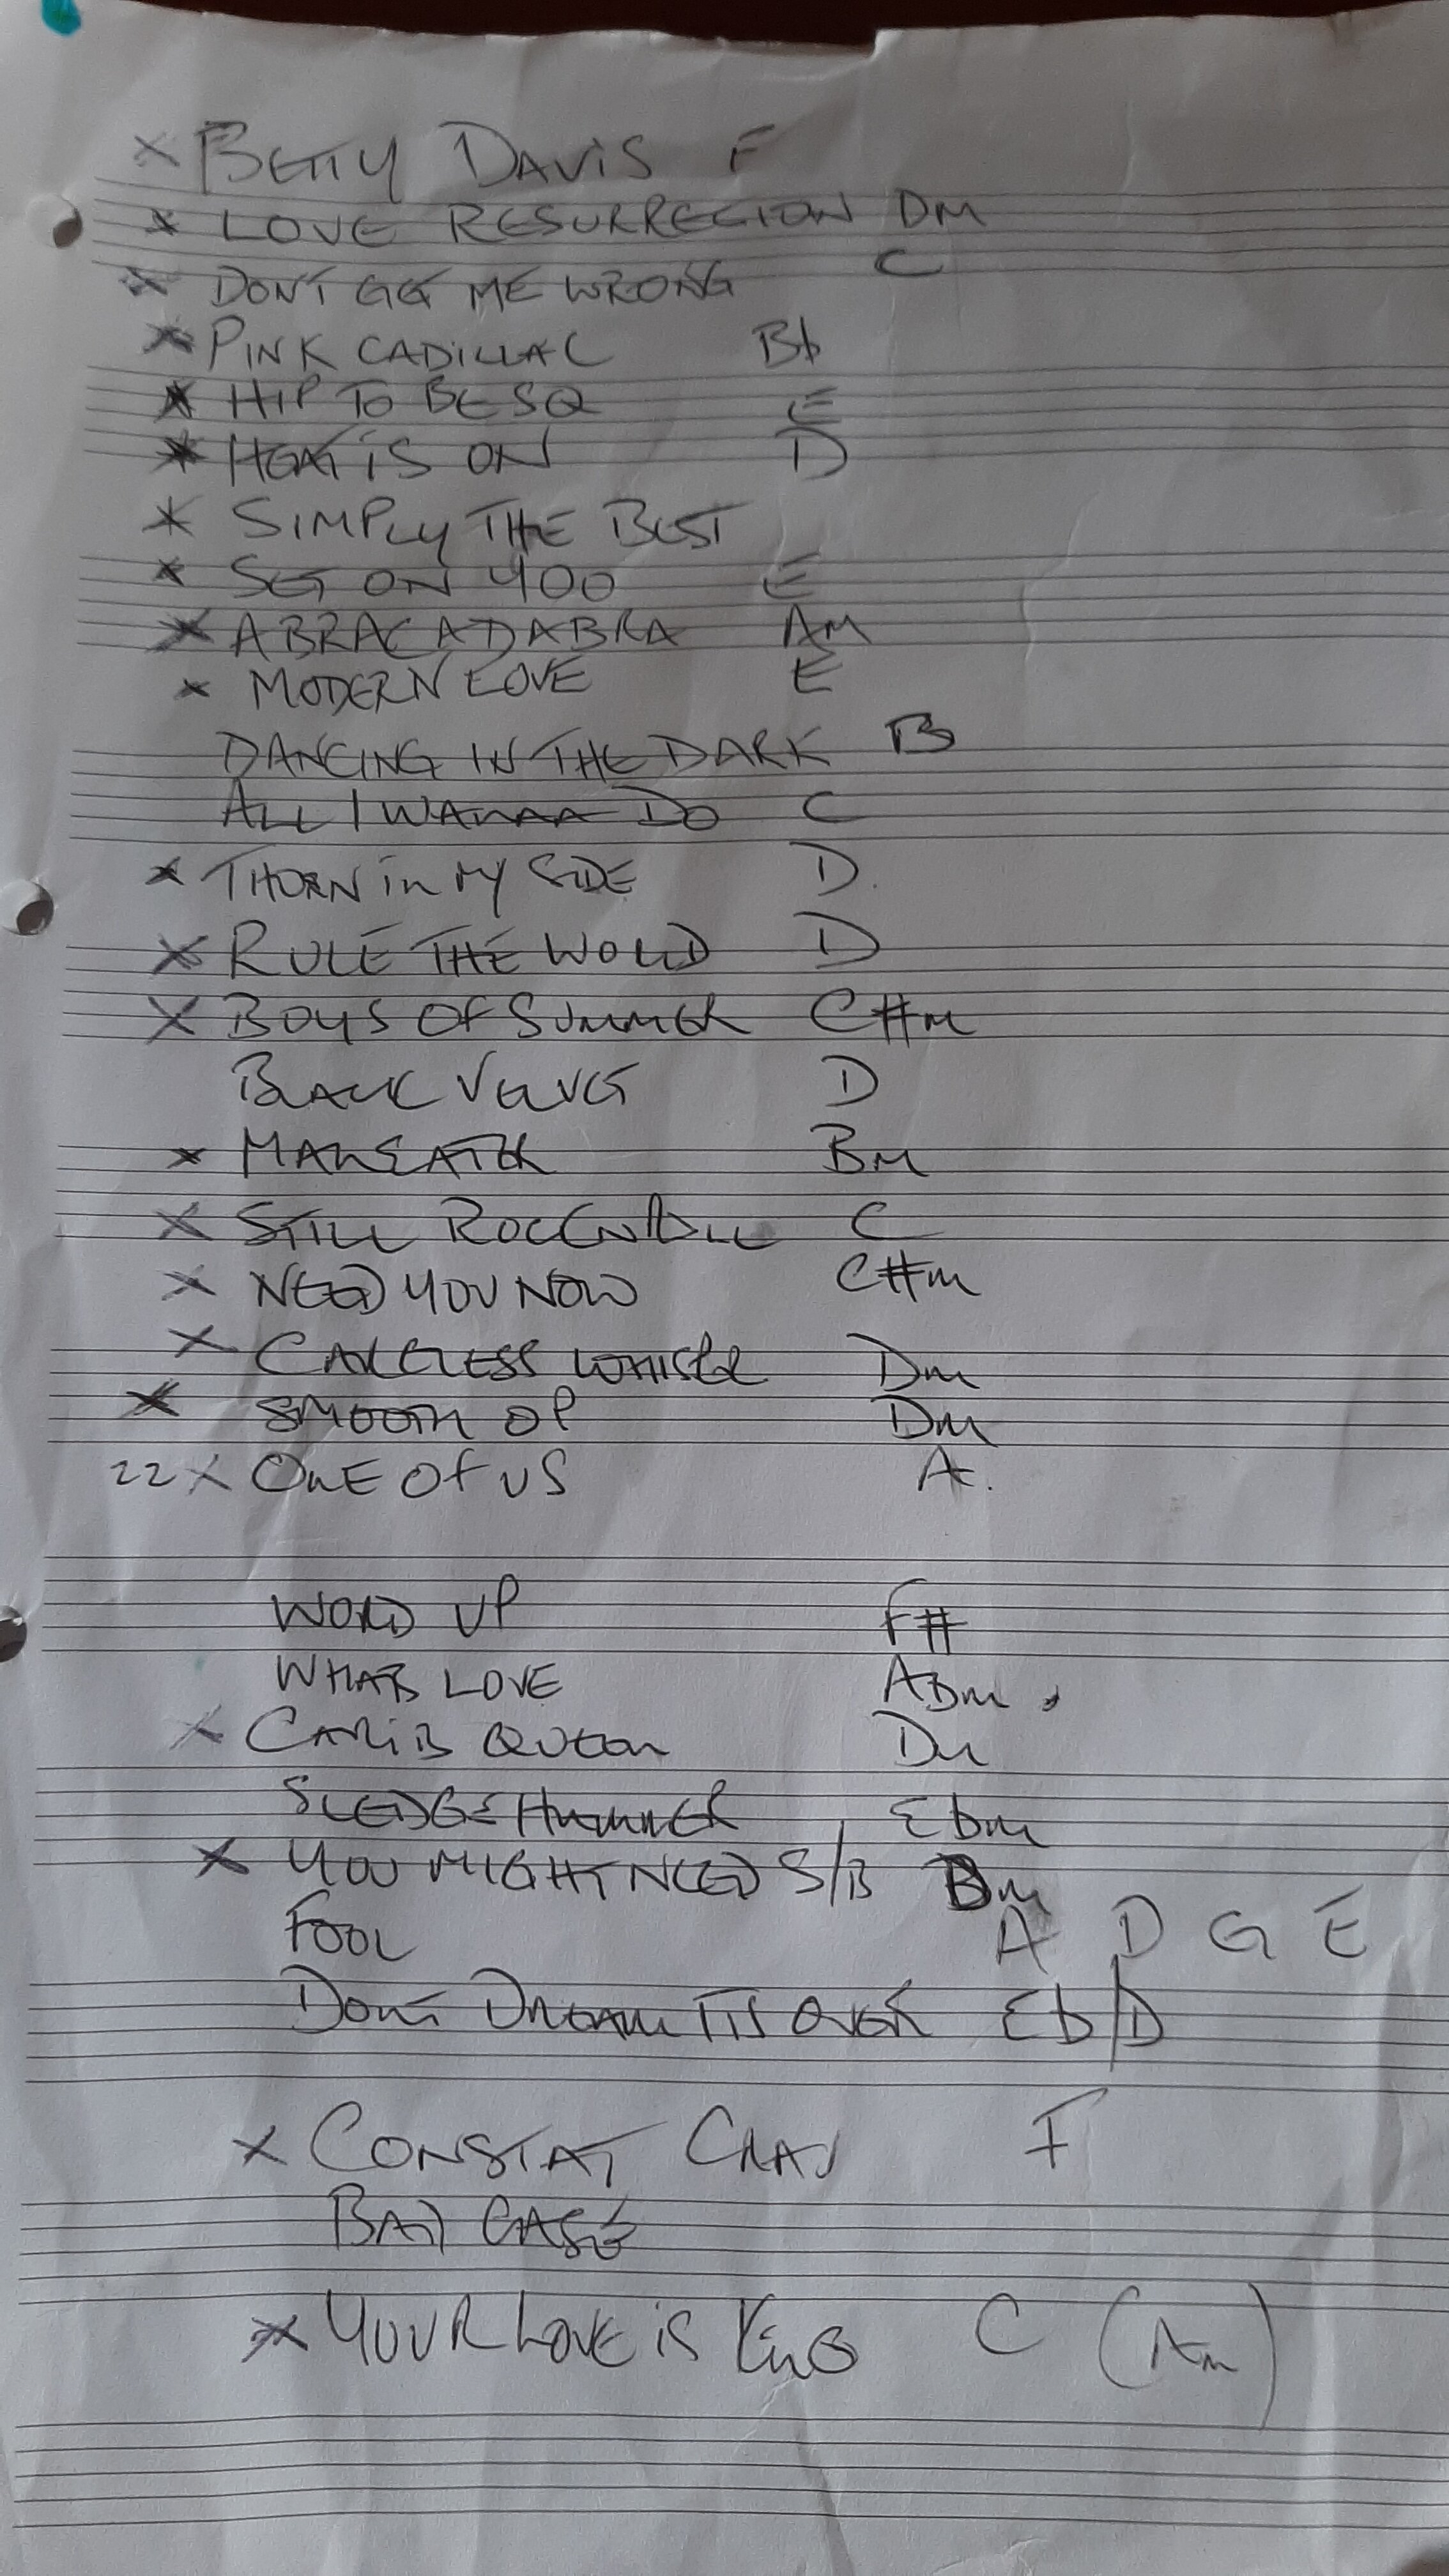 × BETTY DAVIS F
× LOVE RESURRECION DM
× DON'T GET ME WRONG C
× PINK CADILLAC Bb
× HIP TO BE SQ E
× HEAT IS ON D
× SIMPLY THE BEST
× SET ON YOU E
× ABRACADABRA AM
× MODERN LOVE E
DANCING IN THE DARK B
ALL I WANAA DO C
× THORN in MY SIDE D.
× RULE THE WORLD D
× BOYS OF SUMMER C#m
BLACK VELVET D
× MANEATER BM
× STILL ROCK N ROLL C
× NEED YOU NOW C#m
× CARELESS WHISPER Dm
× SMOOTH OP Dm
22 × ONE OF US A.
WORD UP F#
WHATS LOVE ABm
× CARIB QUEEN Dm
SLEDGEHAMMER Ebm
× YOU MIGHT NEED S/B Bm
FOOL A D G E
DONT DREAM ITS OVER Eb/D
× CONSTAT CRAV F
BAD CASE
× YOUR LOVE iS KinG C (Am)